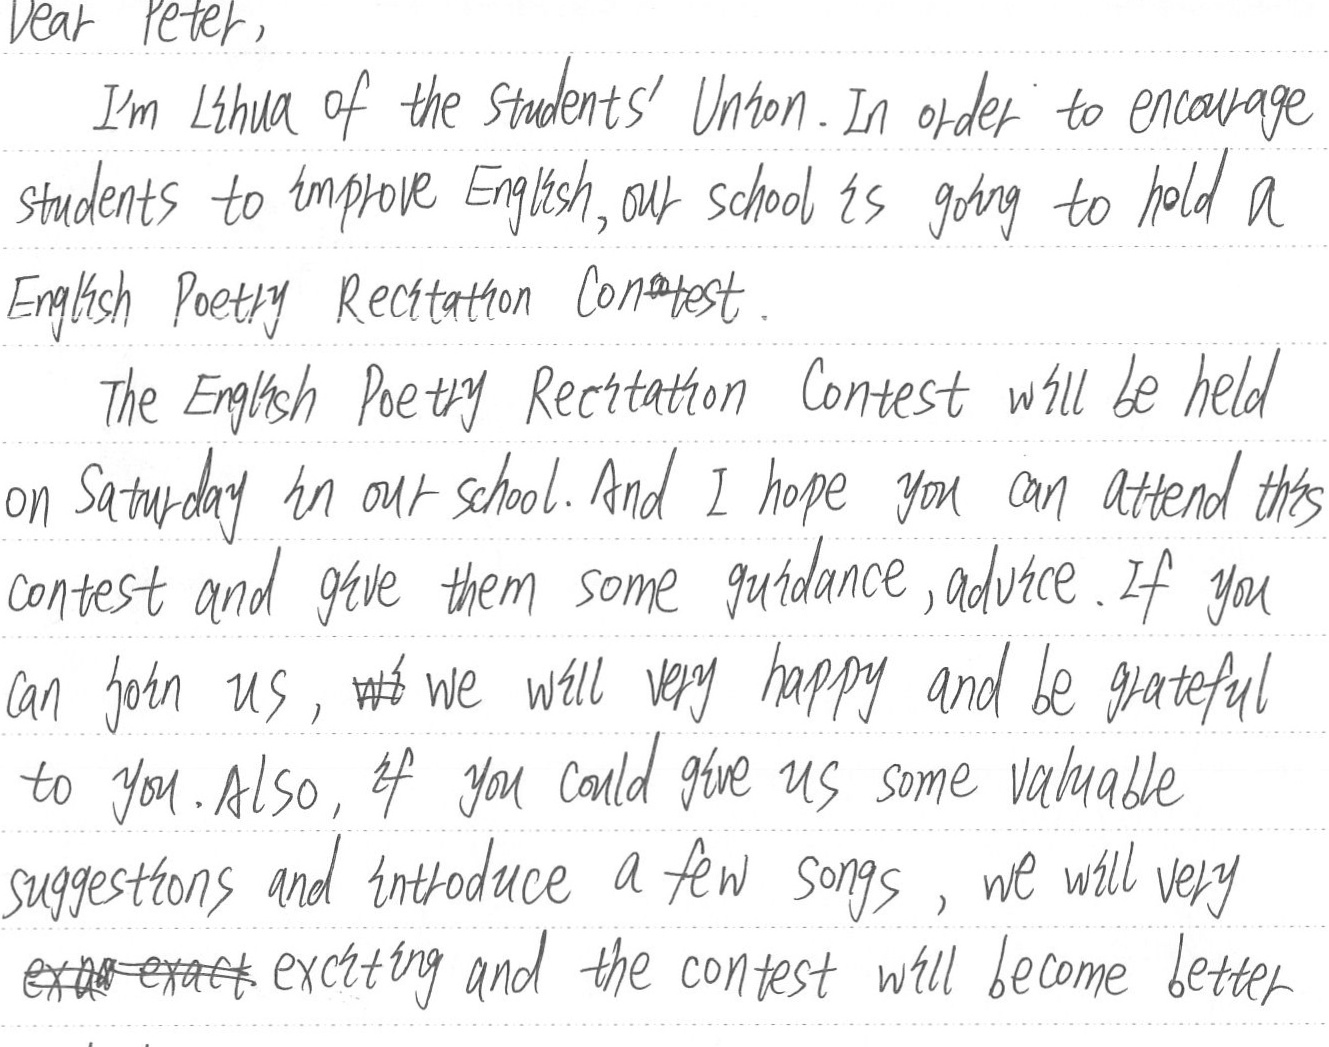 Dear Peter,
I'm Lihua of the Students' Union. In order to encourage
students to improve English, our school is going to hold a
English Poetry Recitation Contest.
The English Poetry Recitation Contest will be held
on Saturday in our school. And I hope you can attend this
contest and give them some guidance, advice. If you
can join us, we will very happy and be grateful
to you. Also, if you could give us some valuable
suggestions and introduce a few songs, we will very
exciting and the contest will become better